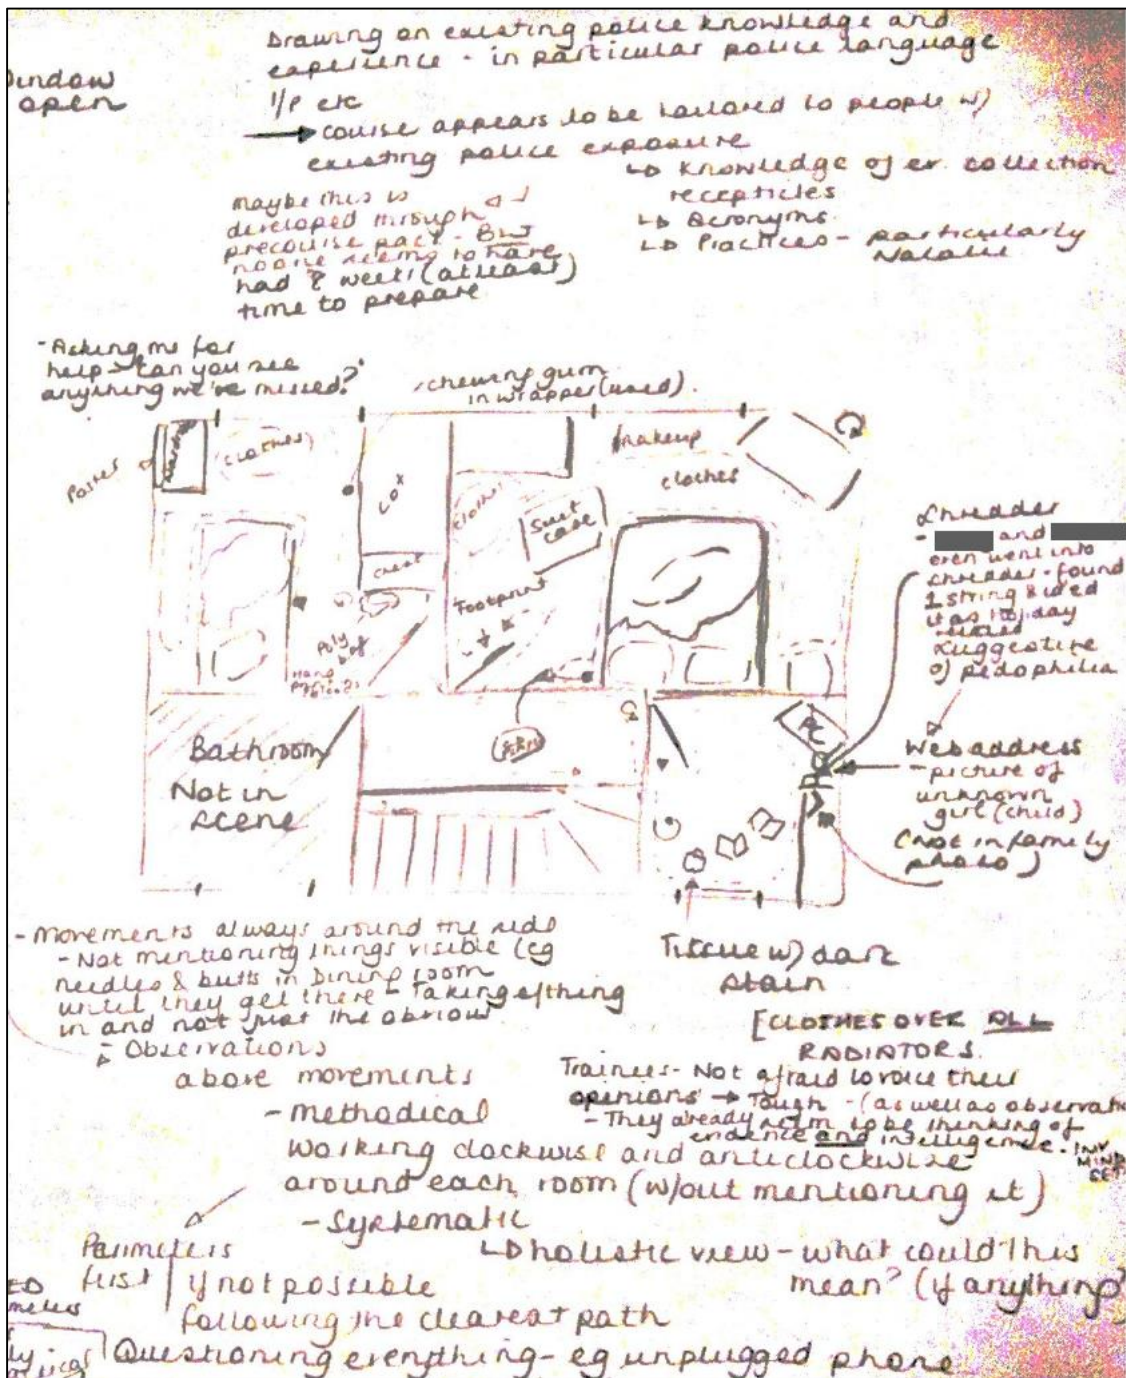 Drawing on existing police knowledge and
experience - in particular police language
I/P etc
Window
open
→ course appears to be tailored to people w)
existing police exposure
↳ Knowledge of ev. collection
recepticles
↳ Acronyms
↳ Practices - particularly
Natalie
maybe this is
developed through
precourse pack - BUT
noone seems to have
had 8 weeks (at least)
time to prepare
- Asking me for
help → "can you see
anything we've missed?"
chewing gum
in wrapper (used).
Poster
Wardrobe
clothes
cot
chest
clothes
Suit
case
Footprint
makeup
clothes
Poly
bag of
Hand
Bathroom
Not in
scene
PC
Shredder
- and
even went into
shredder - found
1 string & ided
it as Holiday
related
Suggestive
of pedophilia
Web address
- picture of
unknown
girl (child)
(not in family
photo)
Tissue w) dark
stain
- Movements always around the side
- Not mentioning things visible (eg
needles & butts in Dining room
until they get there - Taking e/thing
in and not just the obvious
- Observations
above movements
[CLOTHES OVER ALL
RADIATORS.
Trainees - Not afraid to voice their
opinions → Tough - (as well as observatio
- They already seem to be thinking of
evidence and intelligence.
INV
MIND
SET
- methodical
working clockwise and anticlockwise
around each room (w/out mentioning it)
- Systematic
↳ holistic view - what could this
mean? (if anything)
Perimeters
first
if not possible
following the clearest path
Questioning everything - eg unplugged phone